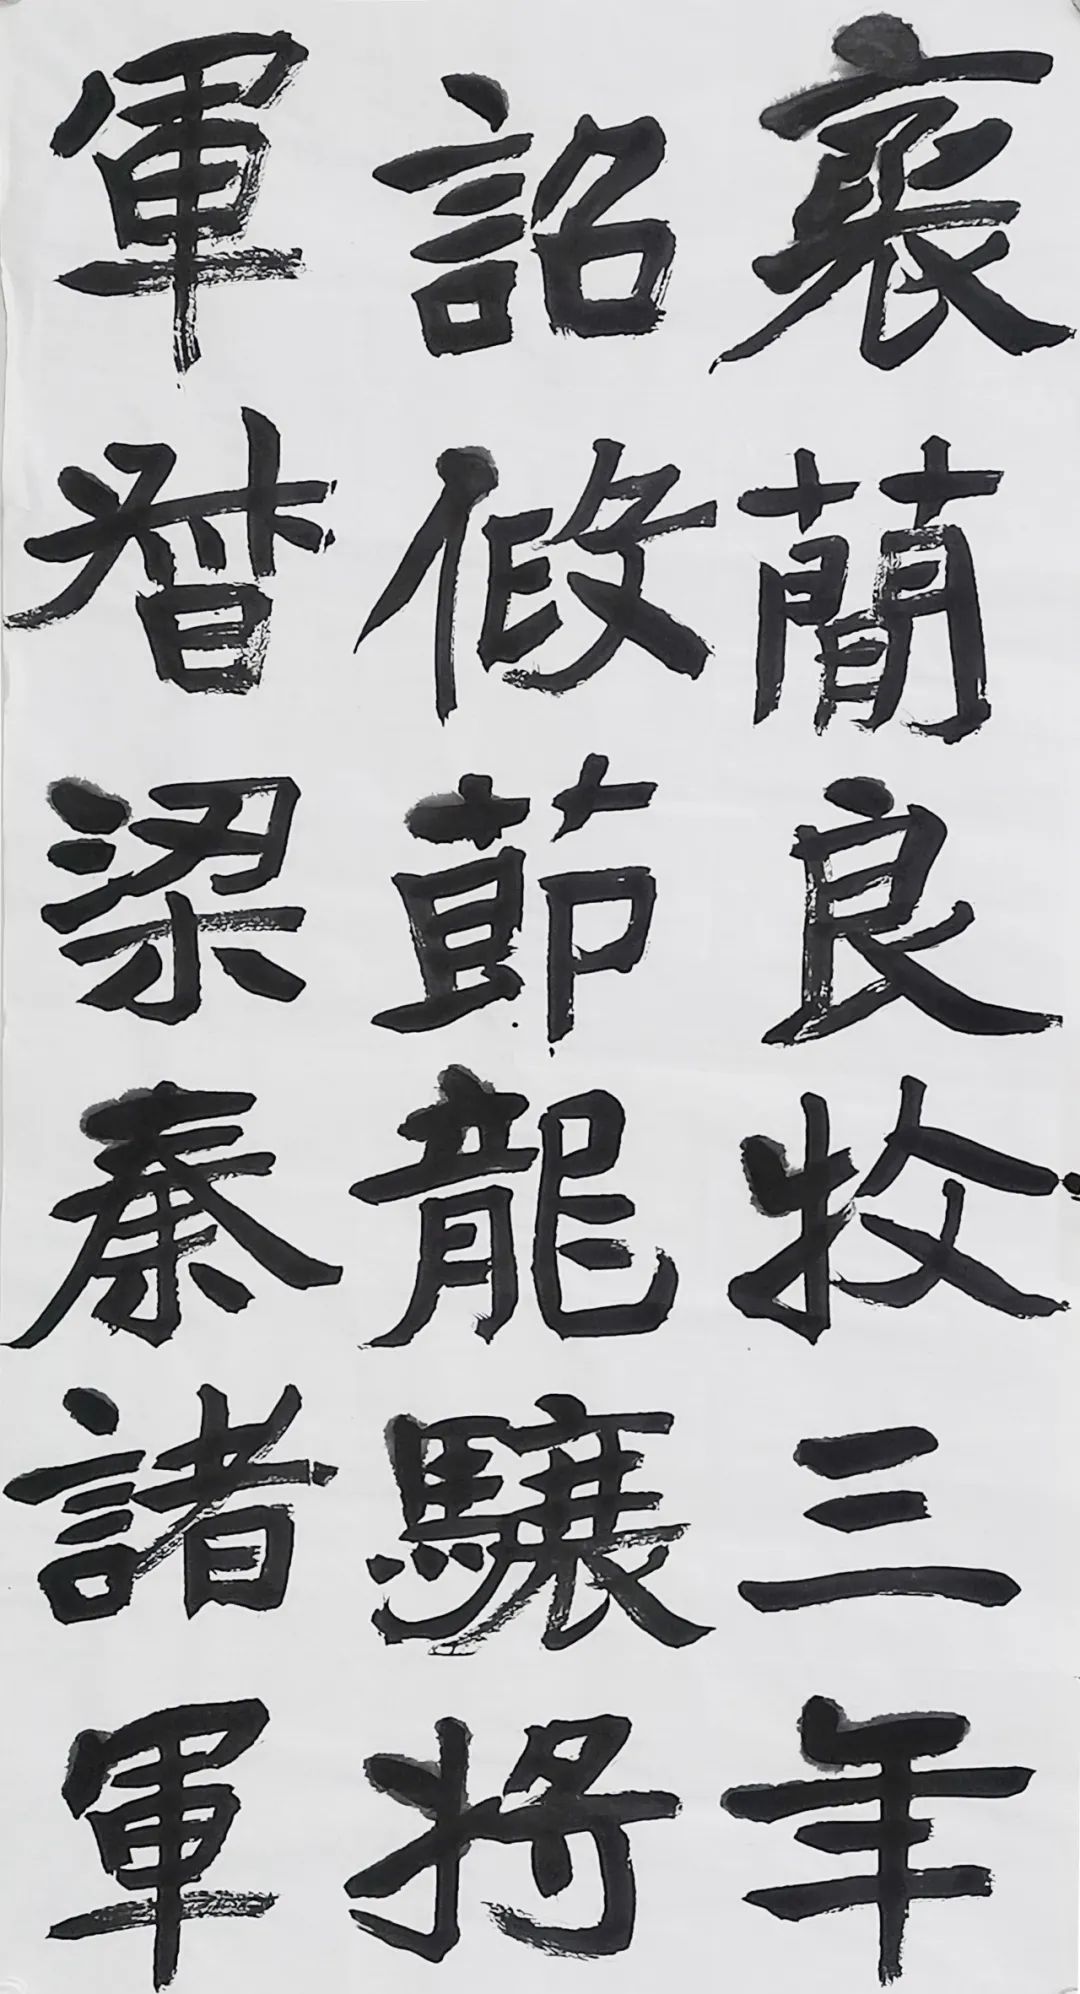 褒簡良牧三年
詔假節龍驤將
軍督梁秦諸軍